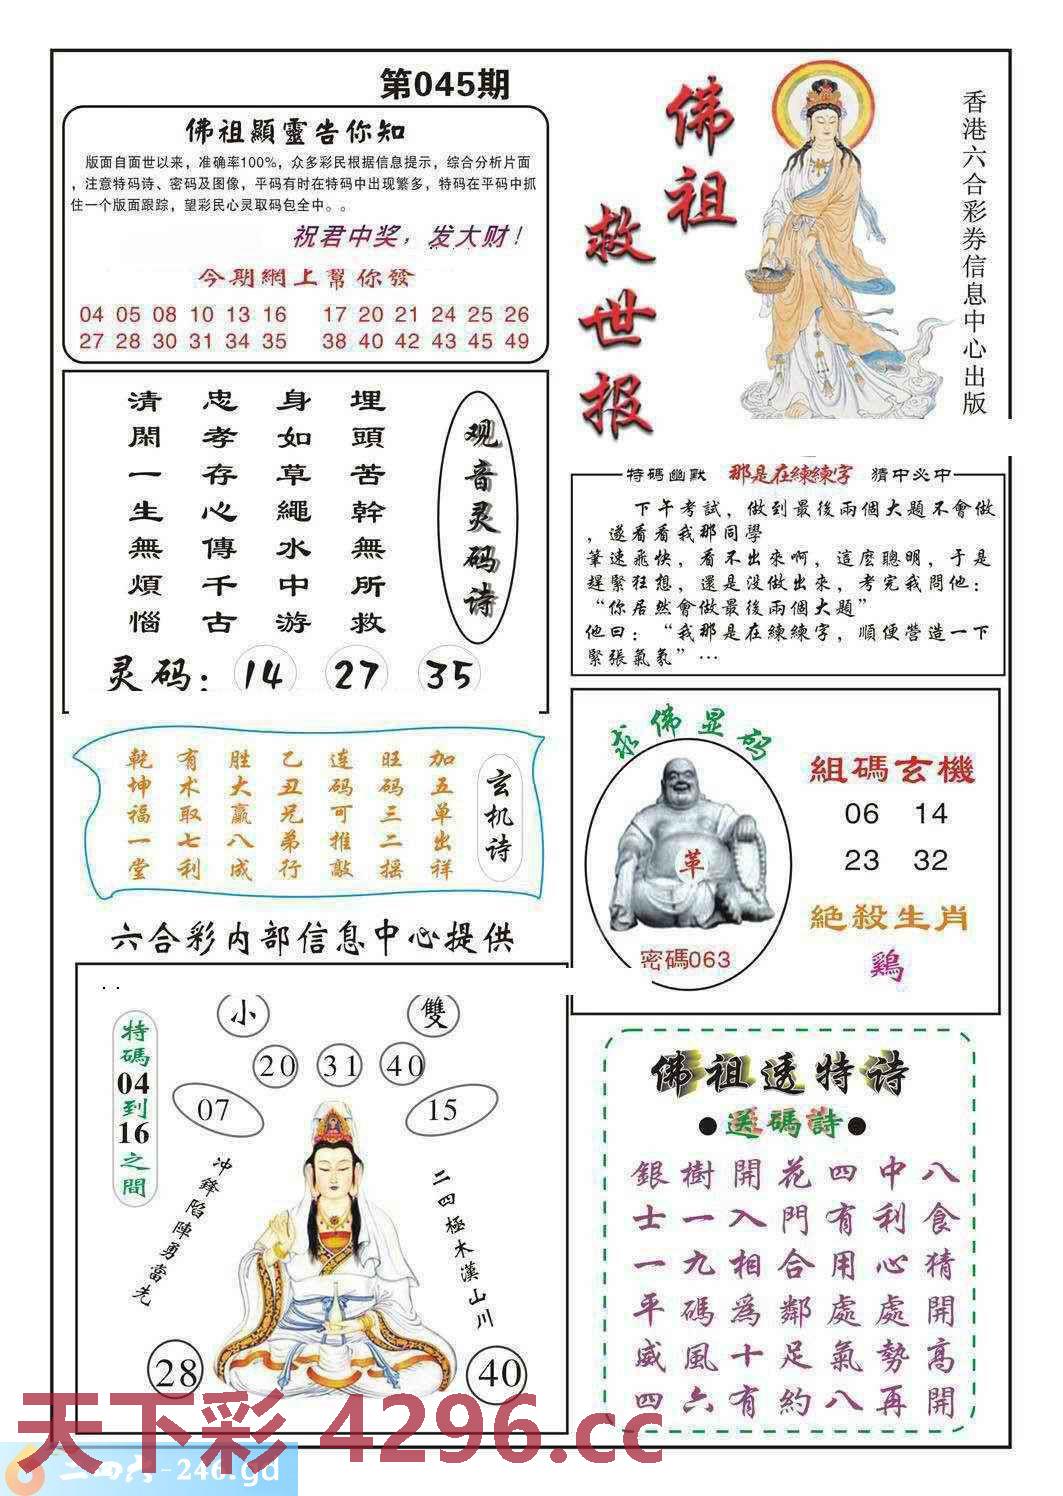 第045期
佛祖顯靈告你知
版面自面世以来，准确率100%，众多彩民根据信息提示，综合分析片面
，注意特码诗、密码及图像，平码有时在特码中出现繁多，特码在平码中抓
住一个版面跟踪，望彩民心灵取码包全中。。
祝君中奖，发大财！
今期網上幫你發
04 05 08 10 13 16 17 20 21 24 25 26
27 28 30 31 34 35 38 40 42 43 45 49
佛祖
救世报
香港六合彩券信息中心出版
观音灵码诗
埋頭苦幹無所救
身如草繩水中游
忠孝存心傳千古
清閑一生無煩惱
灵码：14 27 35
特碼幽默 那是在練練字 猜中必中
下午考試，做到最後兩個大題不會做
，遂看看我那同學
筆速飛快，看不出來啊，這麼聰明，于是
趕緊狂想，還是没做出來，考完我問他：
“你居然會做最後兩個大題”
他曰：“我那是在練練字，順便營造一下
緊張氣氛”…
玄机诗
加五单出祥
旺码三二摇
连码可推敲
乙丑兄弟行
胜大赢八成
有术取七利
乾坤福一堂
求佛显码
革
密碼063
組碼玄機
06 14
23 32
絕殺生肖
鷄
六合彩内部信息中心提供
. .
特碼04到16之間
小
雙
20 31 40
07
15
冲鋒陷陣勇當先
二四極木漢山川
28
40
佛祖透特诗
●送碼詩●
銀樹開花四中八
士一入門有利食
一九相合用心猜
平碼爲鄰處處開
威風十足氣勢高
四六有約八再開
天下彩 4296.cc
二四六-246.gd